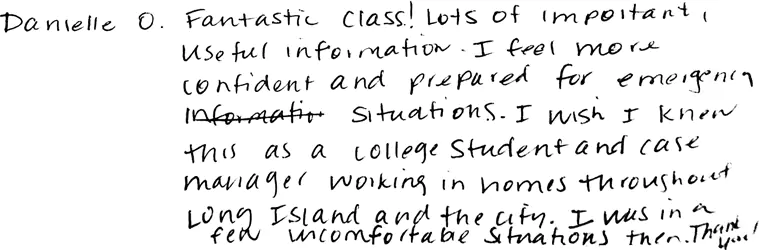 Danielle O. Fantastic class! Lots of important,
useful information. I feel more
confident and prepared for emergency
informatio situations. I wish I knew
this as a college student and case
manager working in homes throughout
Long Island and the city. I was in a
few uncomfortabe situations then. Thank you!